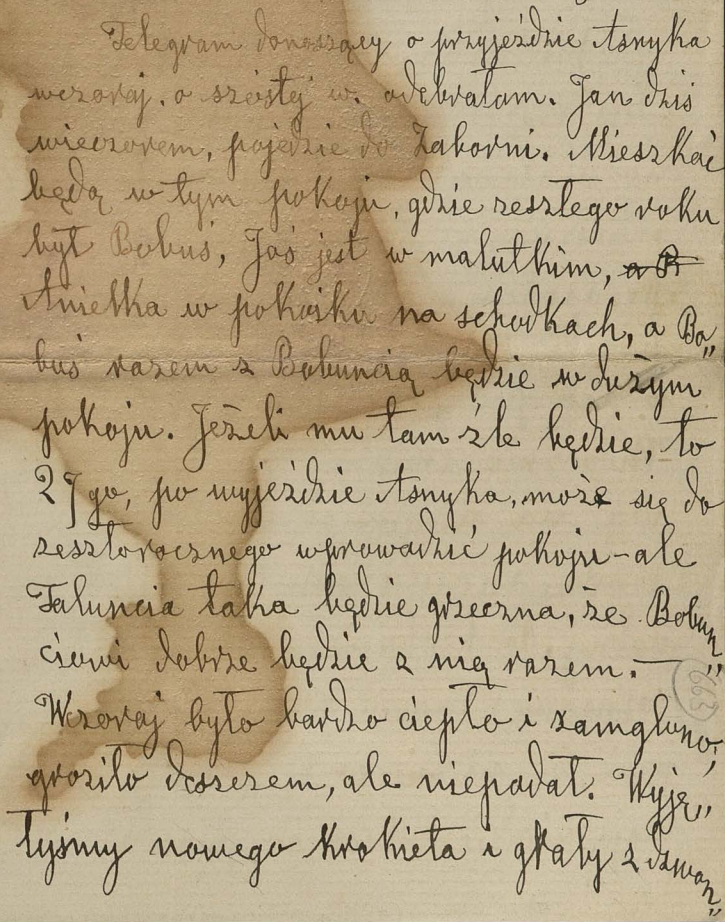 Telegram donoszący o przyjeździe Asnyka
wczoraj o szóstej w. odebrałam. Jan dziś
wieczorem, pojedzie do Zaborni. Mieszkać
będą w tym pokoju, gdzie zeszłego roku
był Bobuś, Jaś jest w malutkim, a B
Anielka w pokoiku na schodkach, a Bo„
buś razem z Bobuncią będzie w dużym
pokoju. Jeżeli mu tam źle będzie, to
27go, po wyjeździe Asnyka, może się do
zeszłorocznego wprowadzić pokoju - ale
Taluncia taka będzie grzeczna, że Bobun„
ciowi dobrze będzie z nią razem. —
Wczoraj było bardzo ciepło i zamglono,
groziło deszczem, ale niepadał. Wyję„
łyśmy nowego krokieta i grały z dzwon„
663